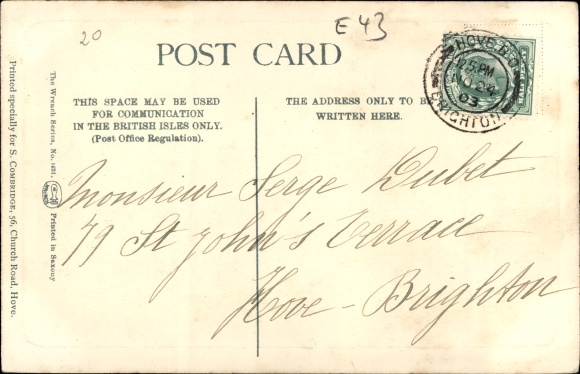 20
E 43
POST CARD
HOVE B.O.
12 5.PM
24
03
BRIGHTON
THIS SPACE MAY BE USED
FOR COMMUNICATION
IN THE BRITISH ISLES ONLY.
(Post Office Regulation).
THE ADDRESS ONLY TO BE
WRITTEN HERE.
Monsieur Serge Dubet
79 St John's Terrace
Hove - Brighton
The Wrench Series, No. Printed in Saxony
Printed specially for S. COMBRIDGE, 56, Church Road, Hove.